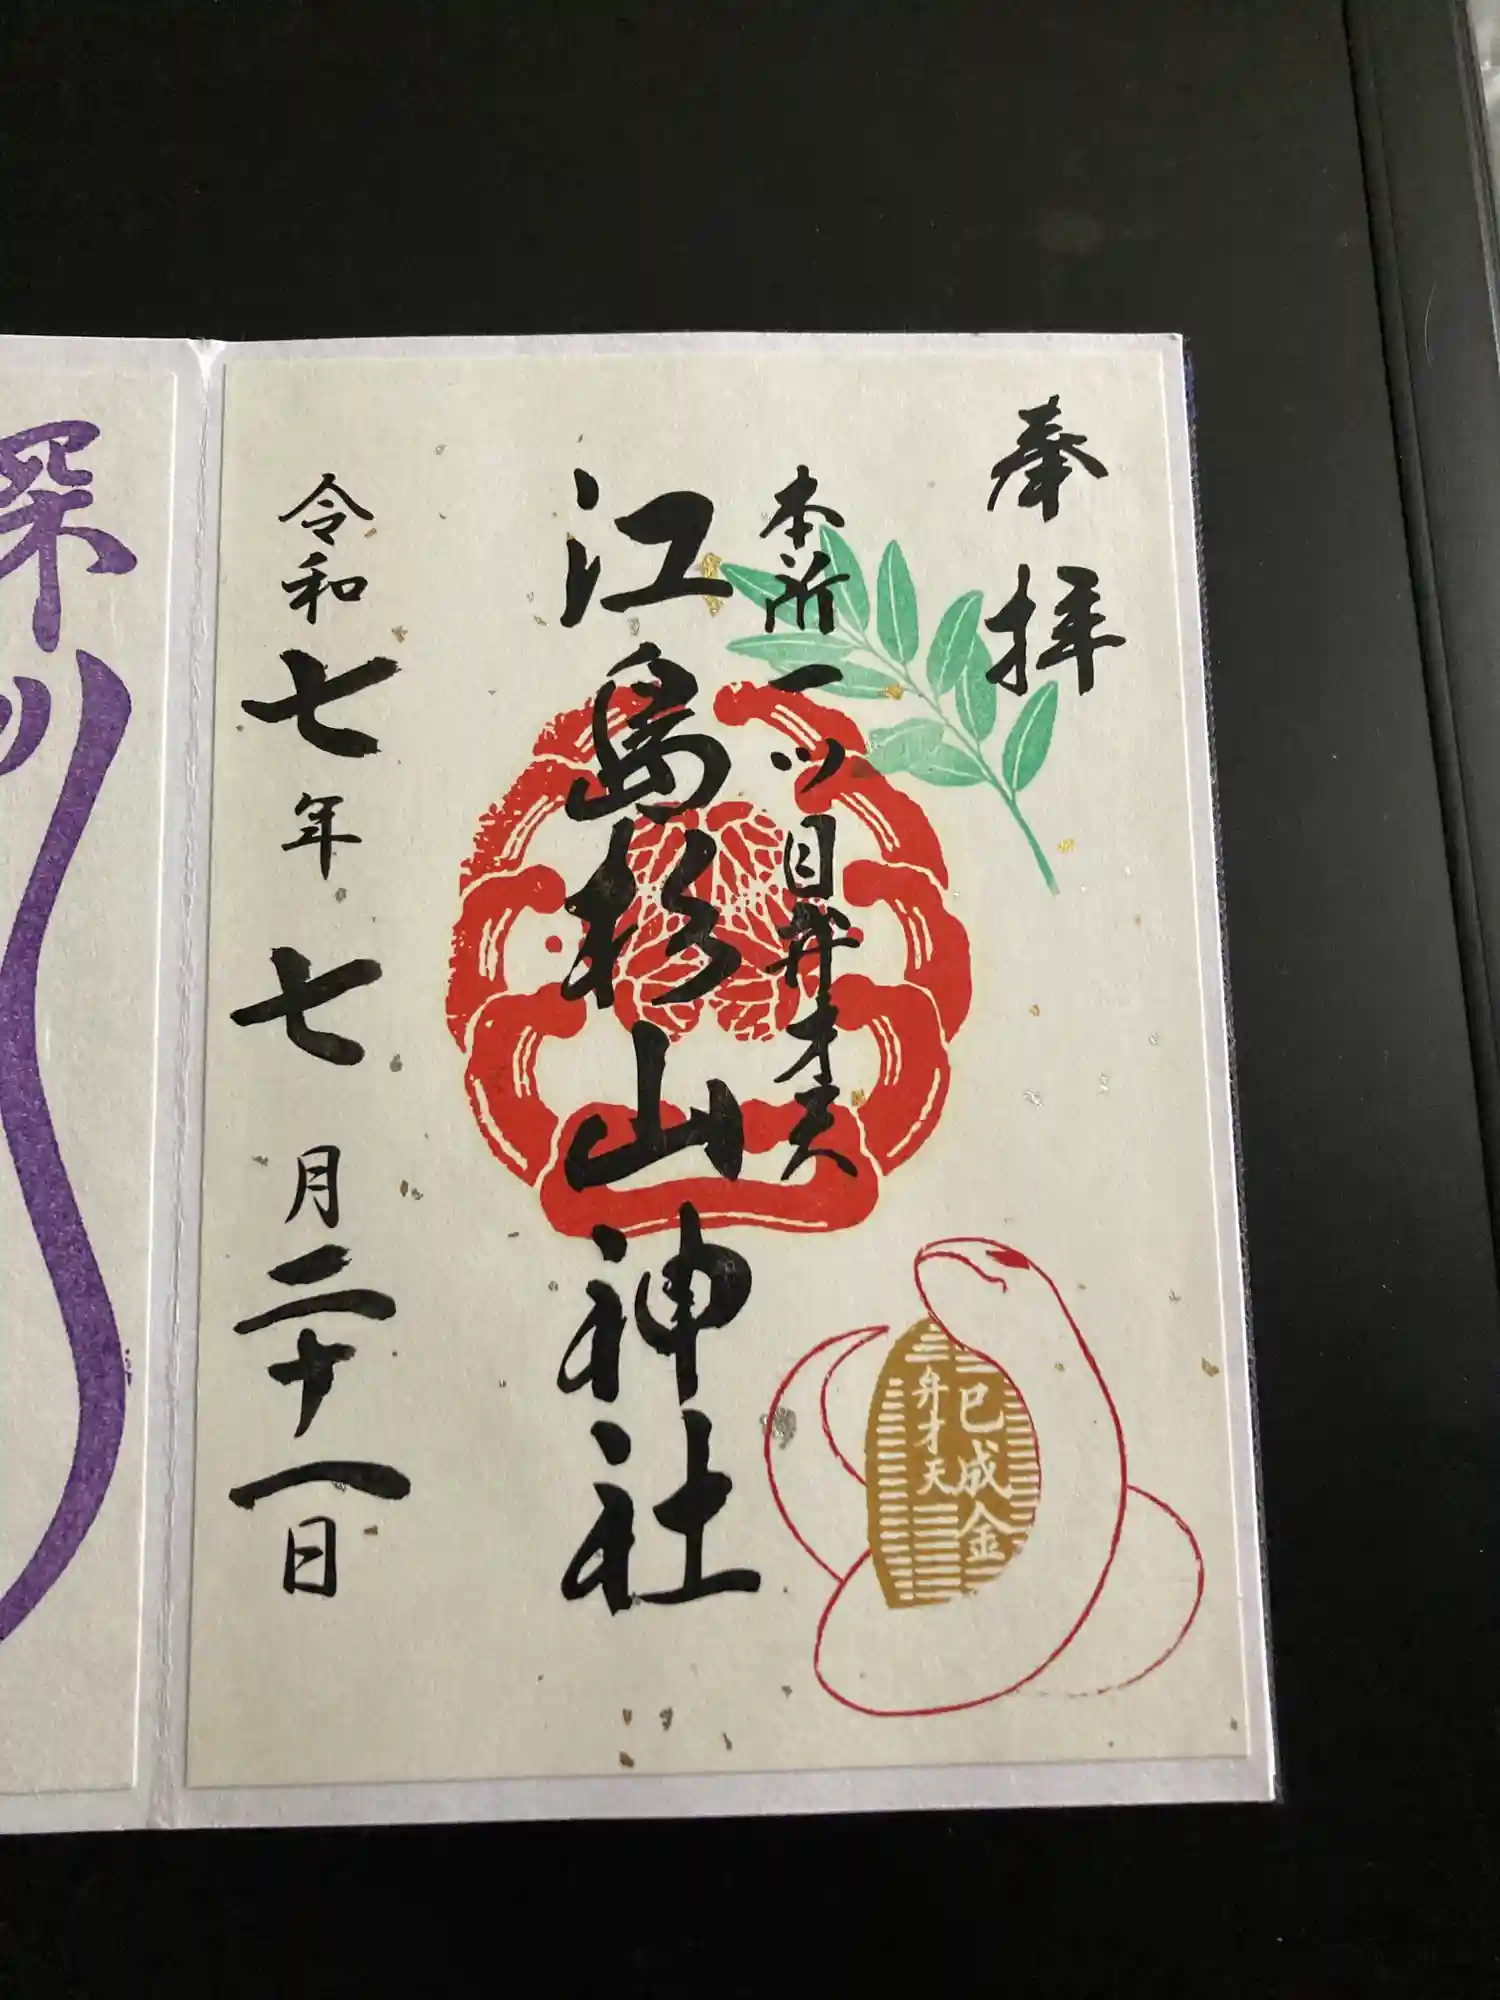 奉拝
本所一ツ目弁才天
江島杉山神社
令和七年七月二十一日
巳成金
弁才天
深川